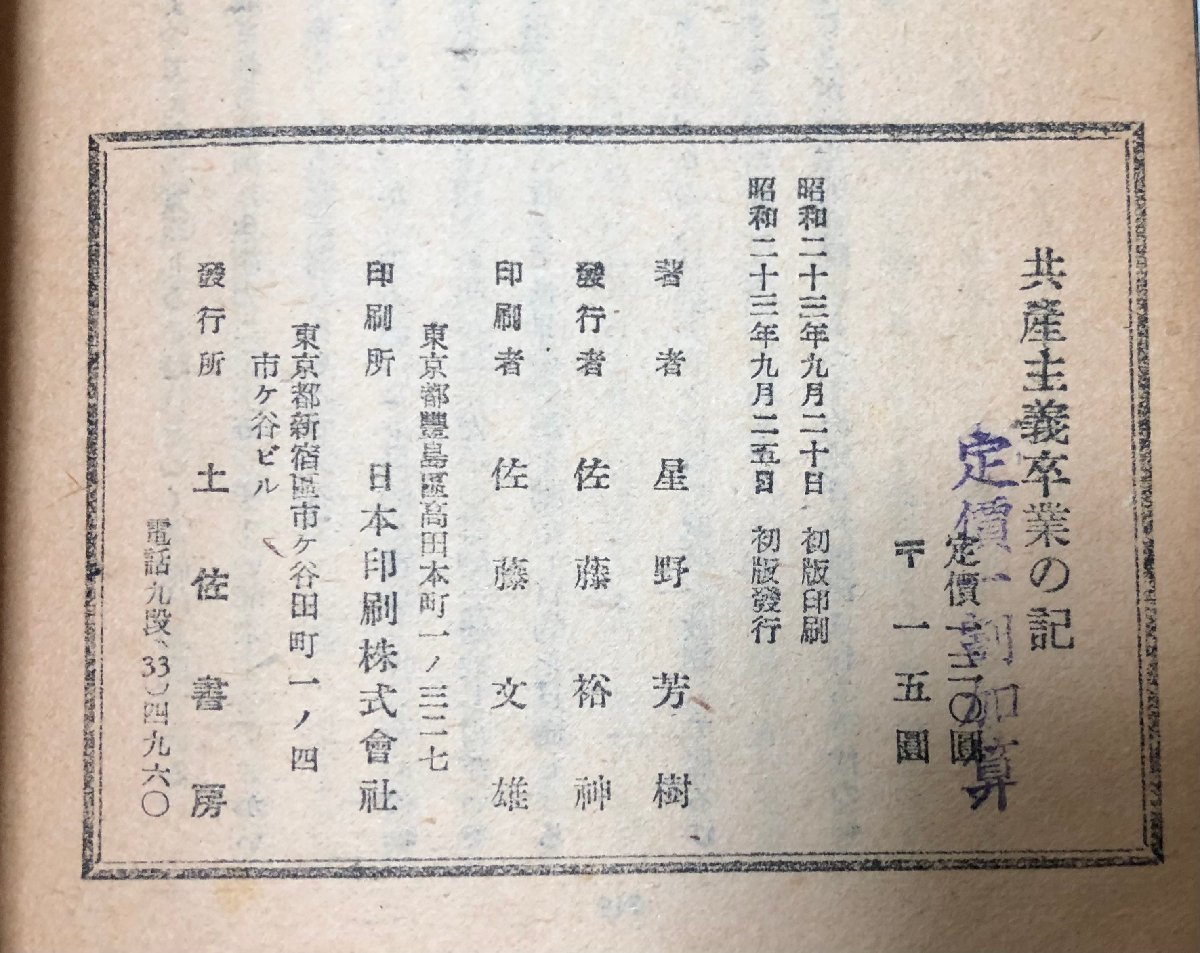 共產主義卒業の記
定價一割加算
定價一三〇圓
〒一五圓
昭和二十三年九月二十日　初版印刷
昭和二十三年九月二五日　初版發行
著者　星野芳樹
發行者　佐藤裕神
印刷者　佐藤文雄
東京都豐島區高田本町一ノ三二七
印刷所　日本印刷株式會社
東京都新宿區市ケ谷田町一ノ四
市ケ谷ビル
發行所　土佐書房
電話九段(33)四九六〇